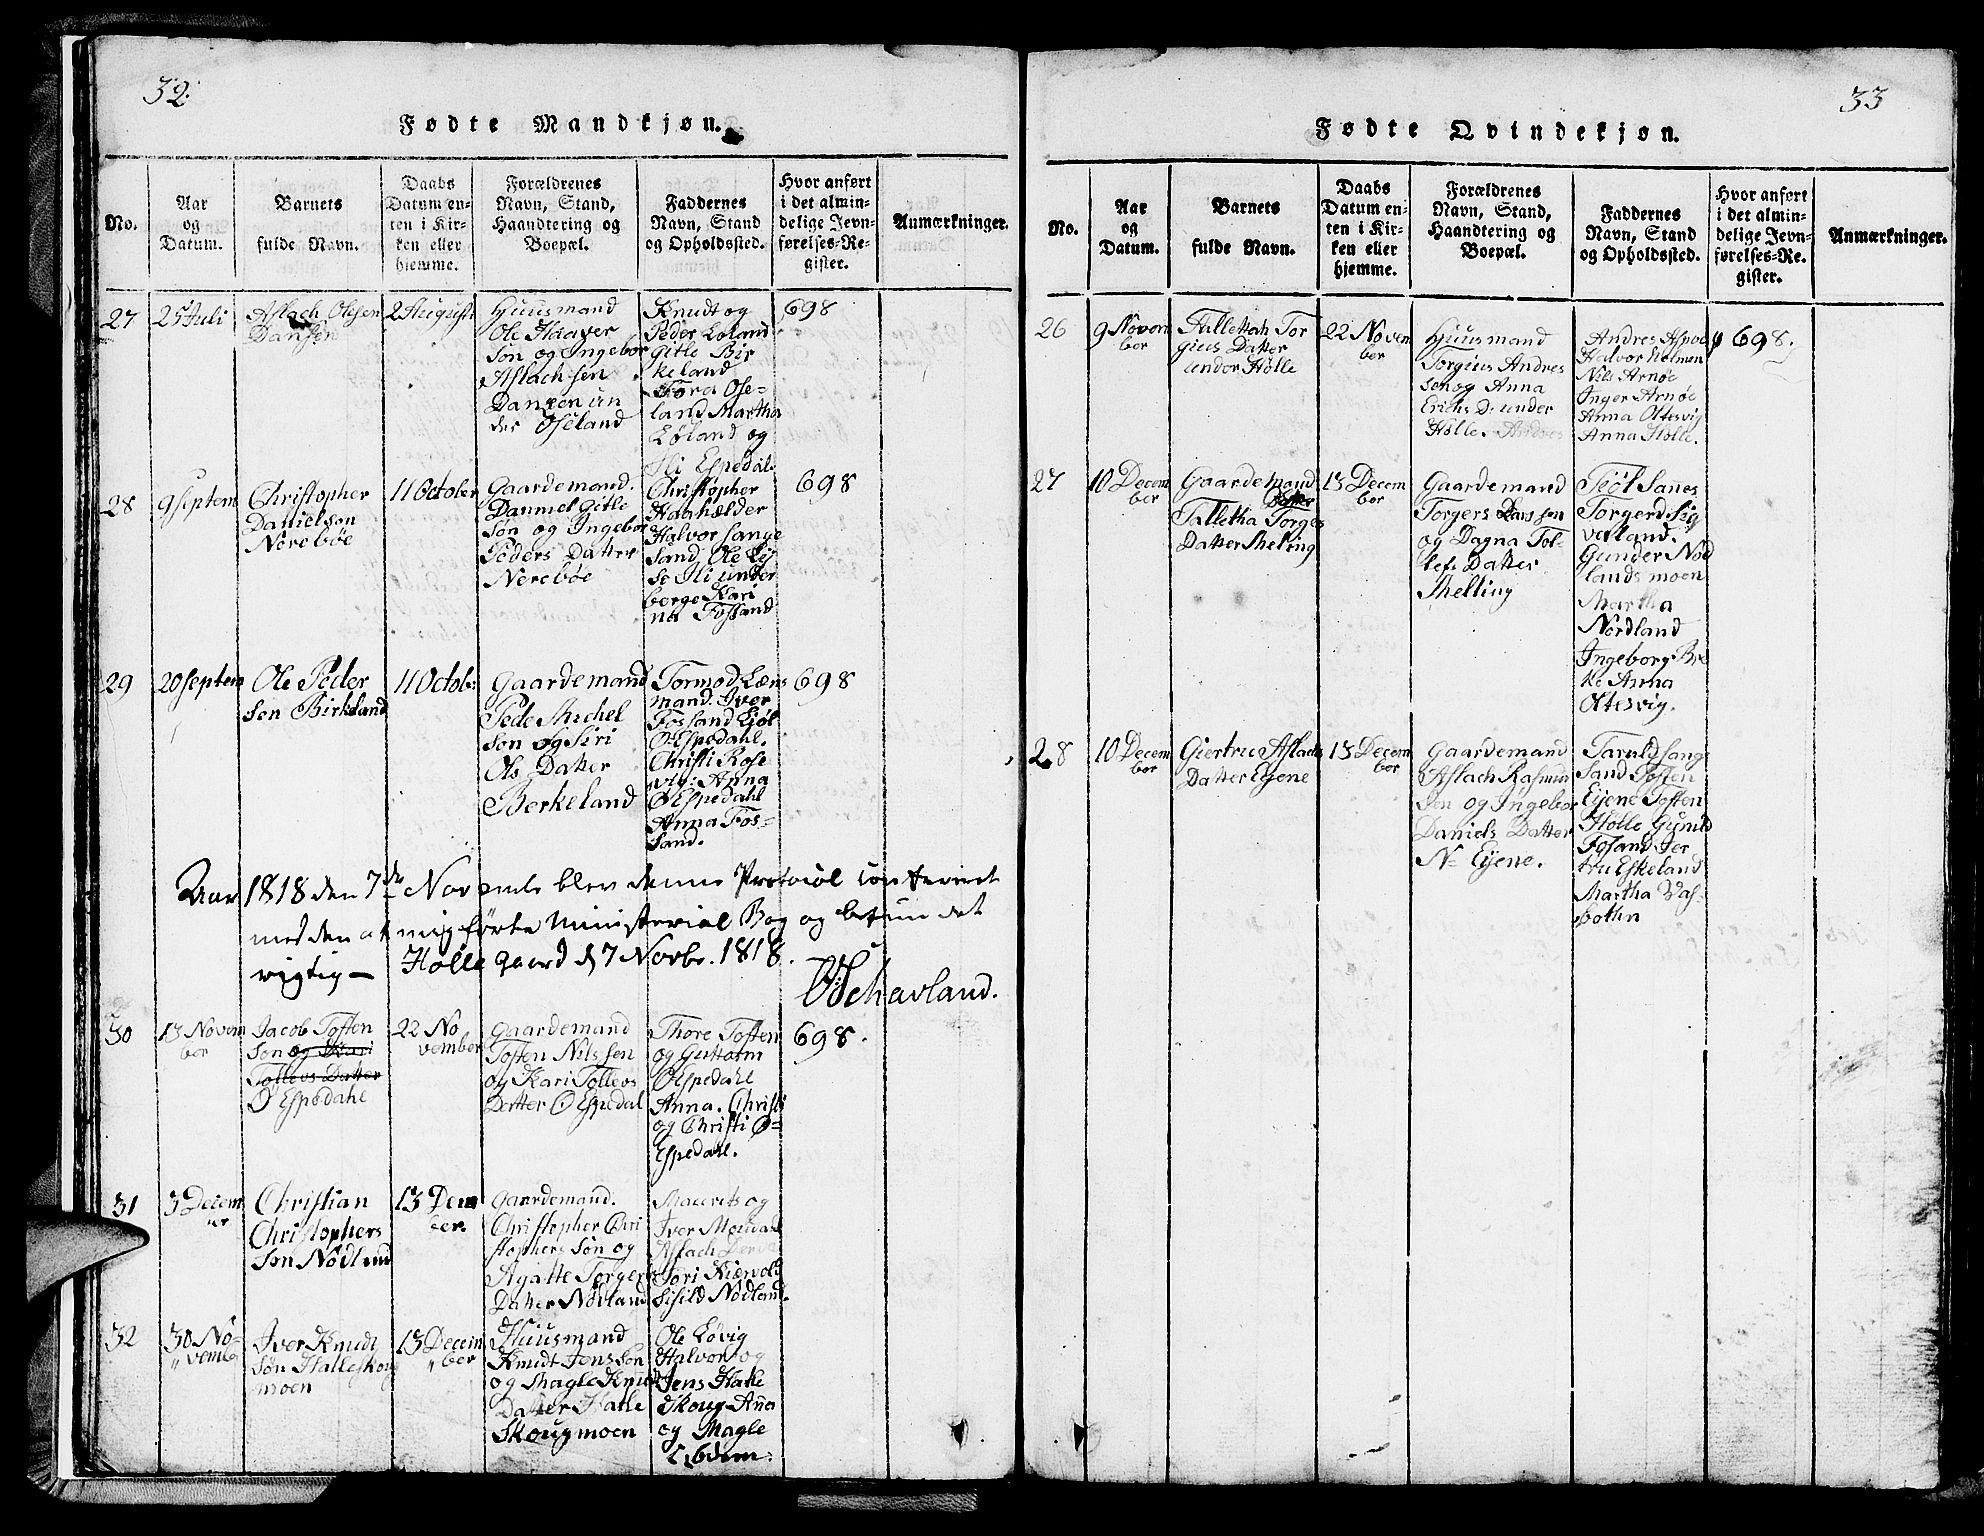 32.
Fødte Mandkjøn.
No.
Aar
og
Datum.
Barnets
fulde Navn.
Daabs
Datum en-
ten i Kir-
ken eller
hjemme.
Forældrenes
Navn, Stand,
Haandtering og
Boepæl.
Faddernes
Navn, Stand
og Opholdssted.
Hvor anført
i det almin-
delige Jevn-
førelses-Re-
gister.
Anmærkninger.
27
25 Juli
Aslach Olesen
Dansen
2 August
Huusmand
Ole Haaver
søn og Ingebor
Aslachsen
Dansen un
der Øseland
Knudt og
Peder Løland
Gitle Bir
keland
Tora Øse-
land Martha
Løland og
Sli Espedal
698
28
9 Septem
Christopher
Danielsøn
Nerebøe
11 October
Gaardemand.
Danniel Gitle
søn og Ingebor
Peders Datter
Nerebøe
Christopher
Haahælder
Halvor Sange
sand Ole Ey
se Sli under
berge Kari
na Fossand
698
29
20 Septem
Ole Peder
sen Birkeland
11 Octob:
Gaardemand
Pede Michel
søn og Siri
Ols Datter
Berkeland
Tormod Læns
mand. Iver
Fossand Liøl
Ø Espedahl.
Christi Rose
vig: Anna
Ø Espedahl
Anna Fos-
sand.
698
Aar 1818 den 7de Novembr blev denne Protocol confereret
med den af mig førte Ministerial Bog og befunden
rigtig — Hølle gaard d 7 Novbr. 1818.
Schavland.
30
13 Novem
ber
Jacob Tosten
søn og Kari
Tollevs Datter
Ø Espedahl
22 No
vember
Gaardemand
Tosten Nilssen
og Kari Tollevs
Datter Ø Espedal
Thore Tosten
og Guttorm
Ø Espedahl
Anna. Christi
og Christi Ø-
Espedahl.
698.
31
3 Decem
ber
Christian
Christophers
søn Nødland
13 Dem
ber.
Gaardemand.
Christopher Chri
stophers søn og
Agatte Torgers
Datter Nødland
Maurits og
Iver Moudahl
Aslach
Tori Kiervol
Sisild Nodland.
32
30 No-
vemb
Iver Knudt
søn Halleskoug
moen
13 Decem
ber
Huusmand
Knudt Jenssøn
og Magle Knud
Datter Halle
Skougmoen
Ole Løvig
Halvor og
Jens Halle
Skoug Ana
og Magle
33
Fødte Qvindekjøn.
No.
Aar
og
Datum.
Barnets
fulde Navn.
Daabs
Datum en-
ten i Kir-
ken eller
hjemme.
Forældrenes
Navn, Stand,
Haandtering og
Boepæl.
Faddernes
Navn, Stand
og Opholdssted.
Hvor anført
i det almin-
delige Jevn-
førelses-Re-
gister.
Anmærkninger.
26
9 Novem
ber
Tallettah Tor
gius Datter
under Hølle
22 Novem
ber
Huusmand
Torgius Andres
sen og Anna
Erichs D under
Hølle. Andres
Andres Aspoe
Halvor Helmen
Nils Arnøe
Inger Arnøe
Anna Oltesvig
Anna Hølle.
698.
27
10 Decem
ber
Gaardemand
Datter
Talletha Torges
Datter Shelting
13 Decem
ber
Gaardemand
Torgers Larssøn
og Dagna Tol-
lefs Datter
Shelting
Tiøl Sanes
Torgerd Sig
veland.
Gunder Nod
landsmoen
Martha
Nordland
Ingeborg Bre
ke Anna
Oltesvig.
28
10 Decem
ber
Giertru Aslachs
Datter Eyene
13 Decem
ber
Gaardemand
Aslach Rasmus
søn og Ingebor
Daniels Datter
N- Eyene.
Tarald Sange
sand Tosten
Eyene Tosten
Hølle Gunild
Fosand Jer
tru Eskeland
Martha Vas-
bothn